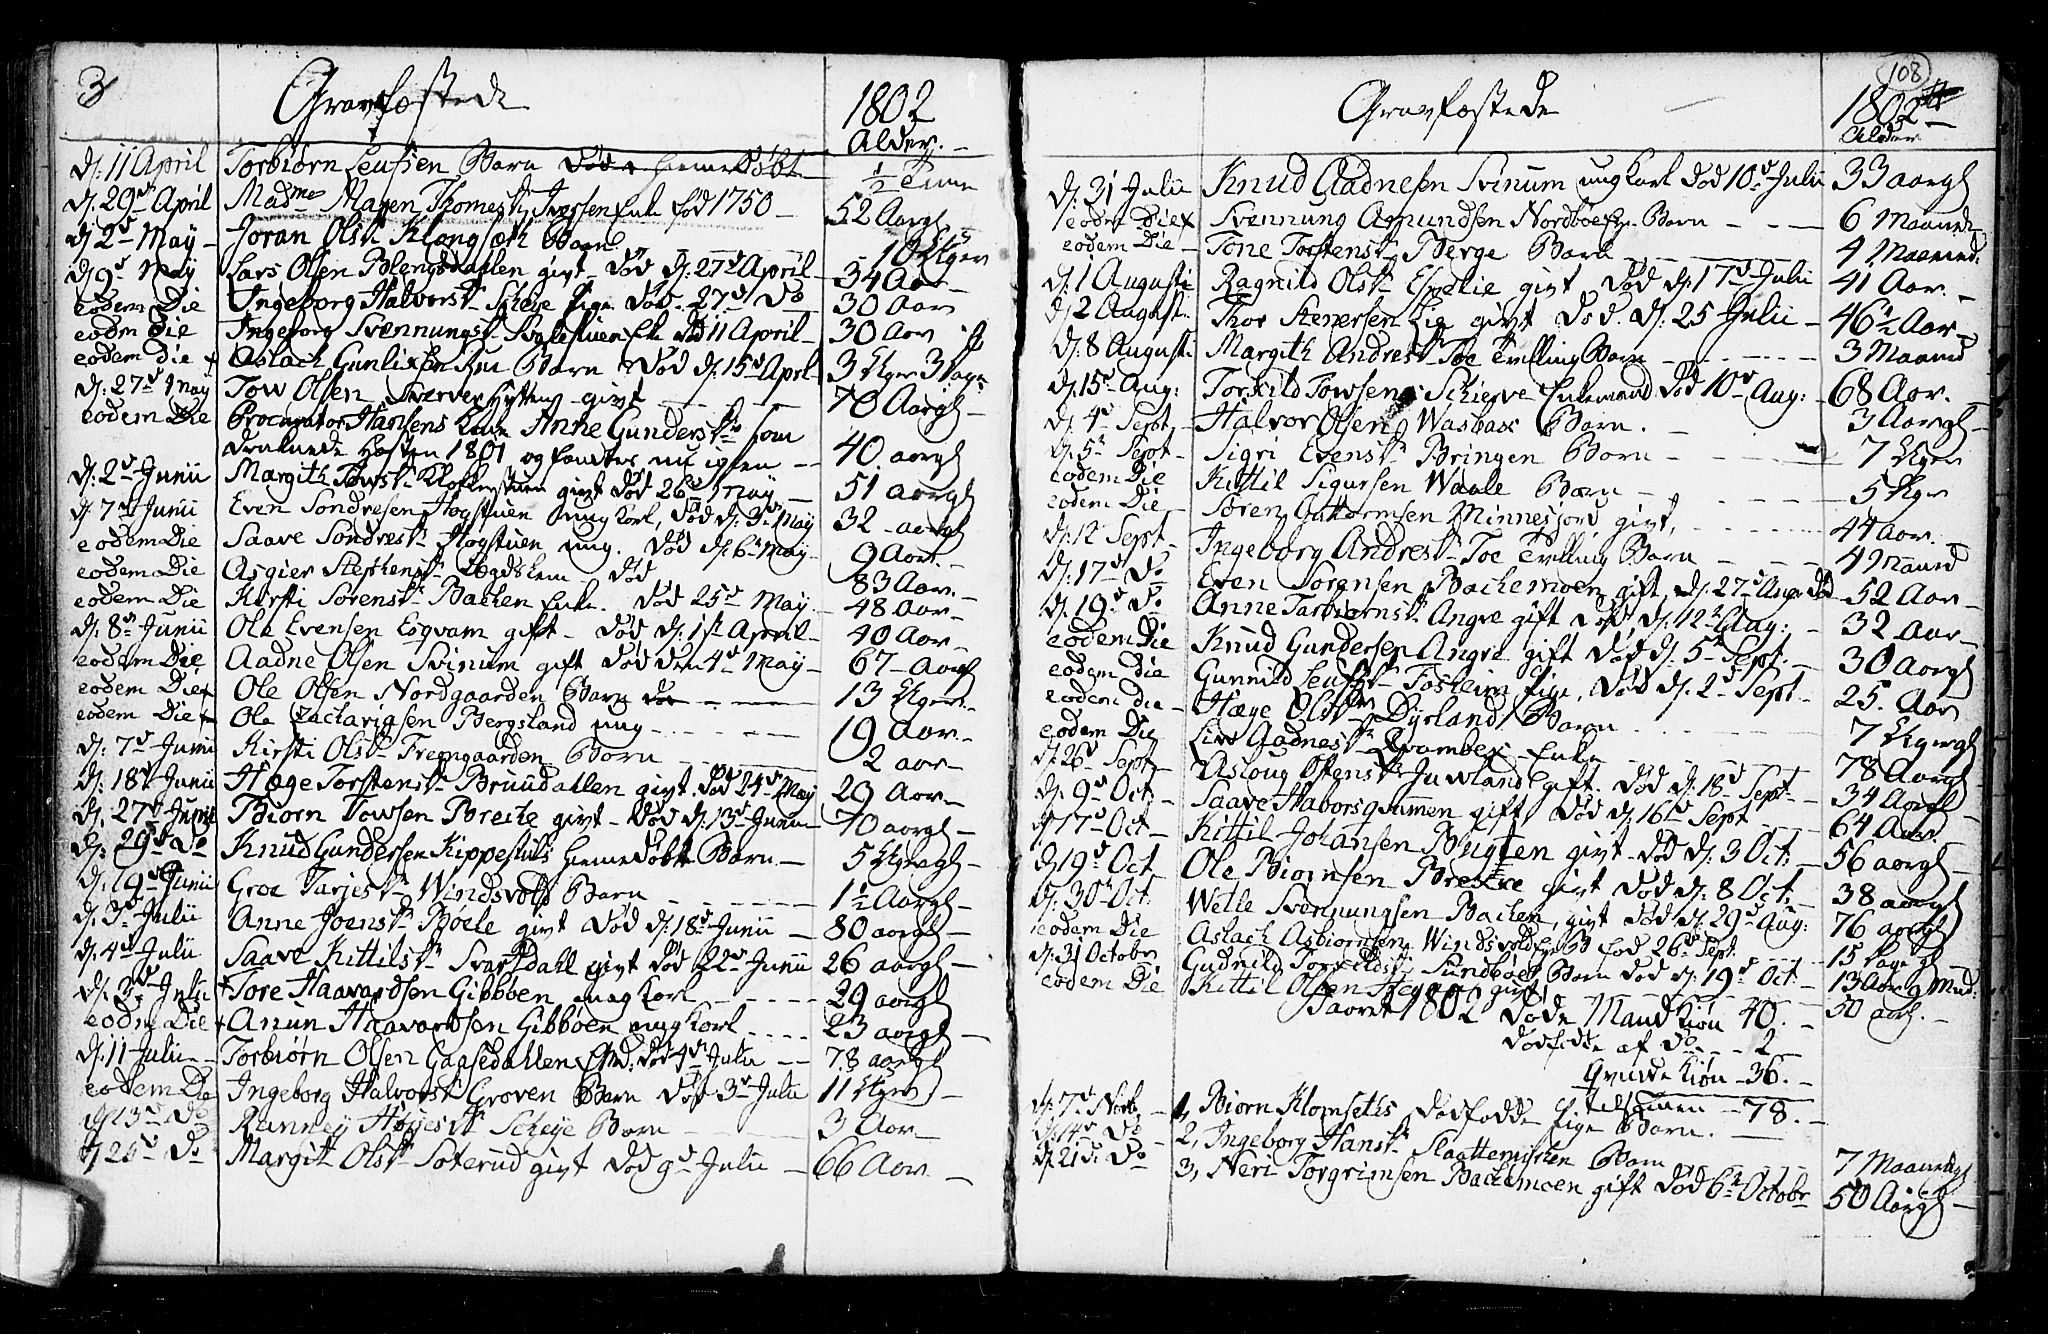 3
Gravfæstede
1802
Alder.
d: 11 April Torbiørn Leufsen Barn død hiemedøbt ½ Time
d: 29de April Madme Maren Thomesdr Iversen Enke fød 1750 52 Aargl
d 2d May Joran Olsdr Klongseth Barn 10 Uger
d 9d May Lars Olsen Blengsdahlen givt død d: 27d April 34 Aar
eodem Die Ingeborg Halvorsdr Scheie Pige død 27d Do 30 Aar
eodm Die Ingeborg Svennungsdr død 11 April 30 Aar
eodem die Aslach Gunlixsen Rui Barn død d: 15d Aprl 3 Uger 3 Dage
d: 27d May Tow Olsen givt 70 Aargl
eodem Die Procurator Hansens Anne Gundersdr som
druknede Høsten 1801 og fandtes nu igien 40 aargl
d: 2d Junii Margith Towsdr Klokkerstuen givt død 26d May 51 aargl
d 7d Junii Even Sondresen Hogstuen ung Karl, død d: 3d May 32 aargl
eodem Die Saave Sondresdr Hogstuen ung. død d. 6t May 9 Aar
eodem Die Asgier Stephens død 83 Aar
eodem Die Kirsti Sørensdr Bachen Enke. død 25d May 48 Aar
d: 8d Junii Ole Evensen Eqvam gift død d: 1ste April 40 Aar
eodem Die Aadne Olsen Svinum gift død den 4d May 67 Aargl
eodem Die Ole Olsen Nordgaarden Barn 13 Uger
eodem Die Ole Zachariasen Bergsland ung 19 Aar
d: 7d Junii Kirsti Olsdr Fremgaarden Barn 2 aar
d: 18d Junii Hæge Torstensdr Bruudahlen givt død 24d May 29 Aar
d. 27d Junii Biørn Towsen Breike givt død d: 13d Junii 70 aargl
d: 29d Do Knud Gundersen Kippestuls hiemedøbt Barn 5 Uger
d: 19d Junii Groe Tarjesdr Windsvold Barn 1½ Aargl
d: 3d Julii Anne Joensdr Boele givt død d: 18d Junii 80 aargl
d: 4d Julii Saave Kittilsdr Svarsdahl givt død 22d Junii 26 aargl
d: 3d Julii Tore Haavardsen Gibbøen ung Karl 29 aargl
eodm Die Anun Haavardsen Gibbøen ung Karl 23 aargl
d. 11 Julii Torbiørn Olsen Gaasedallen død 4d Julii 78 aargl
eodem Die Ingeborg Halvorsdr Groven Barn død 3d Julii 11 Uger
d 13d Do Ranney Scheye Barn 3 Aar
d 25d Do Margit Olsdr Soterud givt død 9d Julii 66 Aar
108
Gravfæstede
1802
Alder
d: 31 Julii Knud Aadnesen Svinum ung Karl død 10d Julii 33 aargl
eodem Die Svennung Asmundsen Barn 6 Maaned
eodem Die Tone Torstensdr Berge Barn 4 Maaned
d: 1 Augusti Ragnild Olsdr Espelie givt død d: 17d Julii 41 Aar
d 2 August Thor Stenersen Lie givt død d: 25 Julii 46½ Aar
d: 8 Augusti Margith Andresdr Toe Tvilling Barn 3 Maaned
d. 15d Aug: Torkild Towsen Schierve Enkemand død 10d Aug: 68 Aar
d. 4d Sept. Halvor Olsen Barn 3 Aargl
d. 5t Sept Sigri Evensdr Bringen Barn 7 Uger
eodem Die Kittil Sigursen Waale Barn 5 Uger
eodem Die Søren Guttormsen Minnesjord givt 44 aar
d. 12 Sept Ingeborg Andresdr Toe Tvilling Barn 4 Maaned
d: 17d Do Even Sørensen Bachemoen gift d. 27d Aug død 52 Aar
d: 19d Do Anne Tarbiørnsdr Angre gift død d: 12t Aug: 32 aar
eodem Die Knud Gundersen Angre gift død d: 5t Sept. 30 aargl
eodem Die Gunnild Fosheim Pige, død d. 2d Sept. 25 Aar
eodem die Hæge Olsdr Dyrland Barn 7 Uger
eodem Die Live Aadnesdr Enke 78 Aargl
d: 26d Sept Aslaug Østensdr Juvland gift død d: 18d Sept 34 Aargl
d: 9d Oct Saave gift død d 16d Sept 64 Aar
d 17d Oct Kittil Johansen Bugten givt død d: 3 Oct: 56 aargl
d 19d Oct Ole Biørnsen Breike givt død d: 8 Oct: 38 aargl
d: 30t Oct: Welle Svennungsen Bachen, givt død d. 29d Aug: 76 aargl
eodem Die Aslach Asbiørnsen Windsvold fød 26d Sept. 15 Dage
d: 31 October Gudnild Sundboe Barn død d: 19d Oct: 13 Aar 9 Mnd:
eodem Die Kittil Olsen gift 50 aargl
I aaret 1802 døde Mandkiøn 40.
dødfødte af Do 2
Qvindekiøn 36.
tilsamen 78.
d. 7d Novb. 1, Biørn Klomseths dødfødde Pige Barn.
d. 14d Do 2, Ingeborg Hansdr Barn 7 Maaneder
d. 21d Do 3, Neri Torgrimsen Bachemoen gift død 6t October 50 Aargl